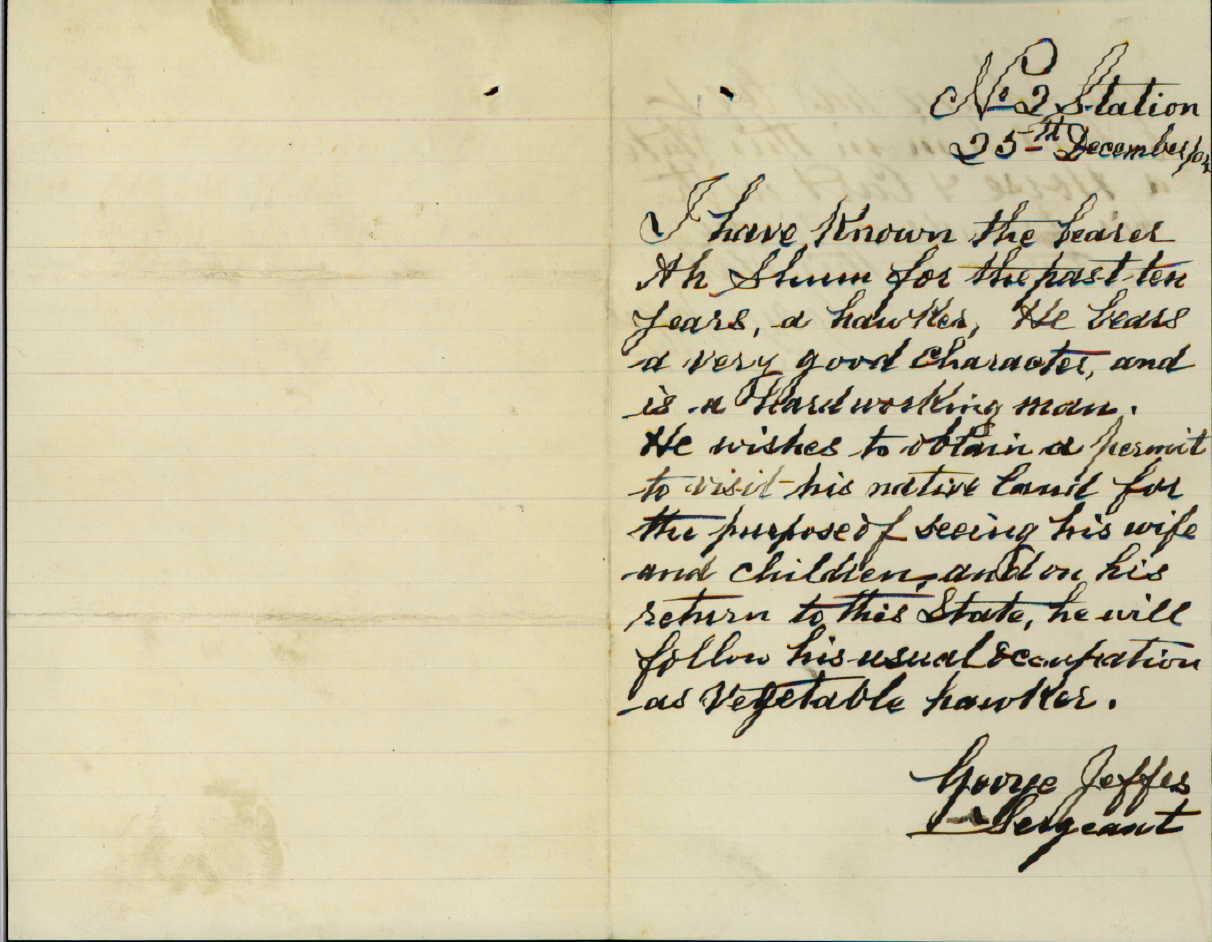 No 2 Station
25th December/04
I have Known the bearer
Ah Shum for the past ten
years, a hawker, He bears
a very good Character, and
is a Hardworking man.
He wishes to obtain a permit
to visit his native land for
the purpose of seeing his wife
and children, and on his
return to this State, he will
follow his usual occupation
as Vegetable hawker.
George Jeffes
Sergeant